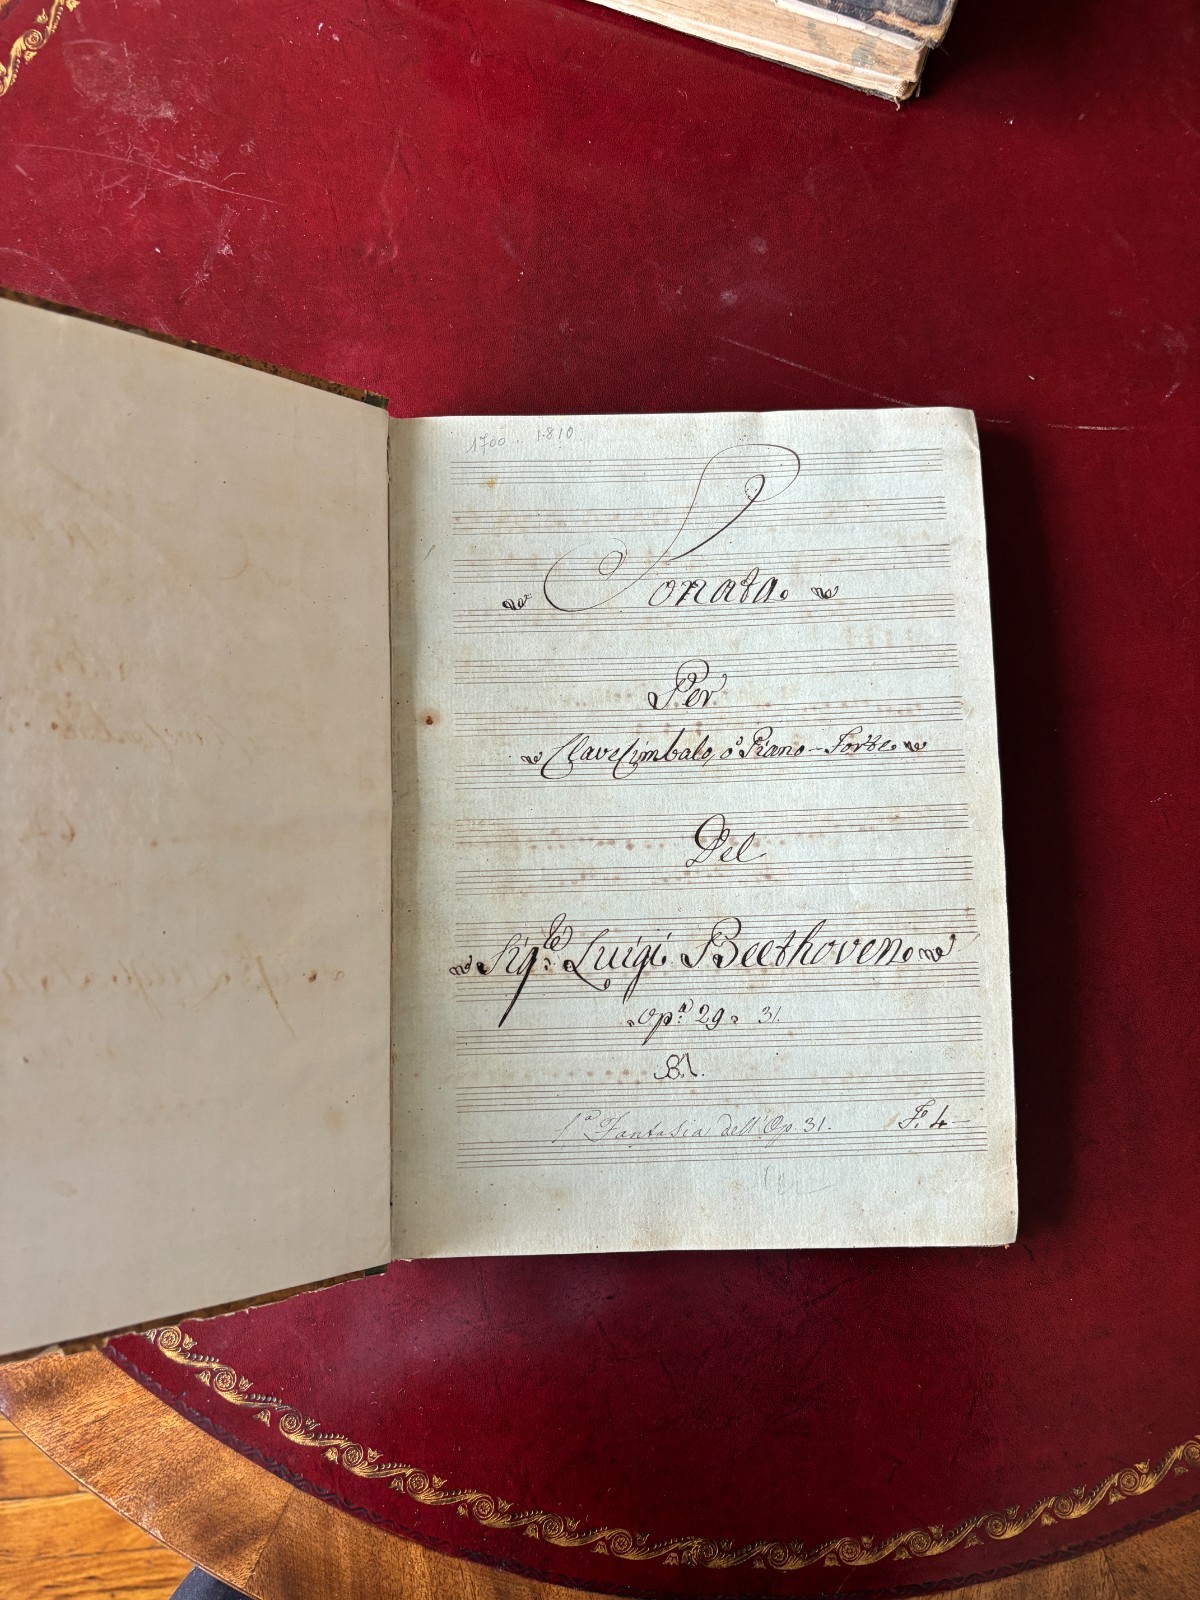 1700. 1810
Sonata.
Per
ClaveCimbalo, ò Piano-Forte.
Del
Sig.re Luigi Beethoven.
Op.a 29. 31.
1.a Fantasia dell'Op. 31. F. 4-